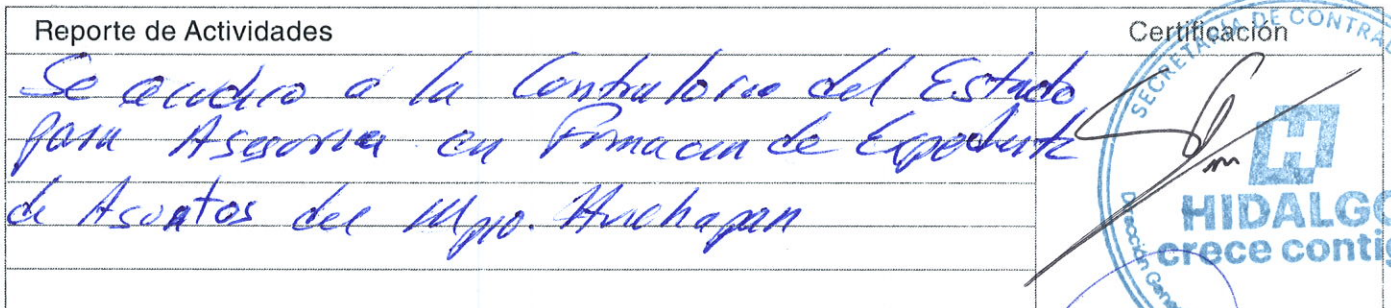 Reporte de Actividades
Certificación
Se acudio a la Contraloria del Estado
para Asesoria en Firmacion de Expediente
de Asuntos del Mpio. Huichapan
SECRETARÍA DE CONTRAL
HIDALGO
crece contig
Dirección Gene